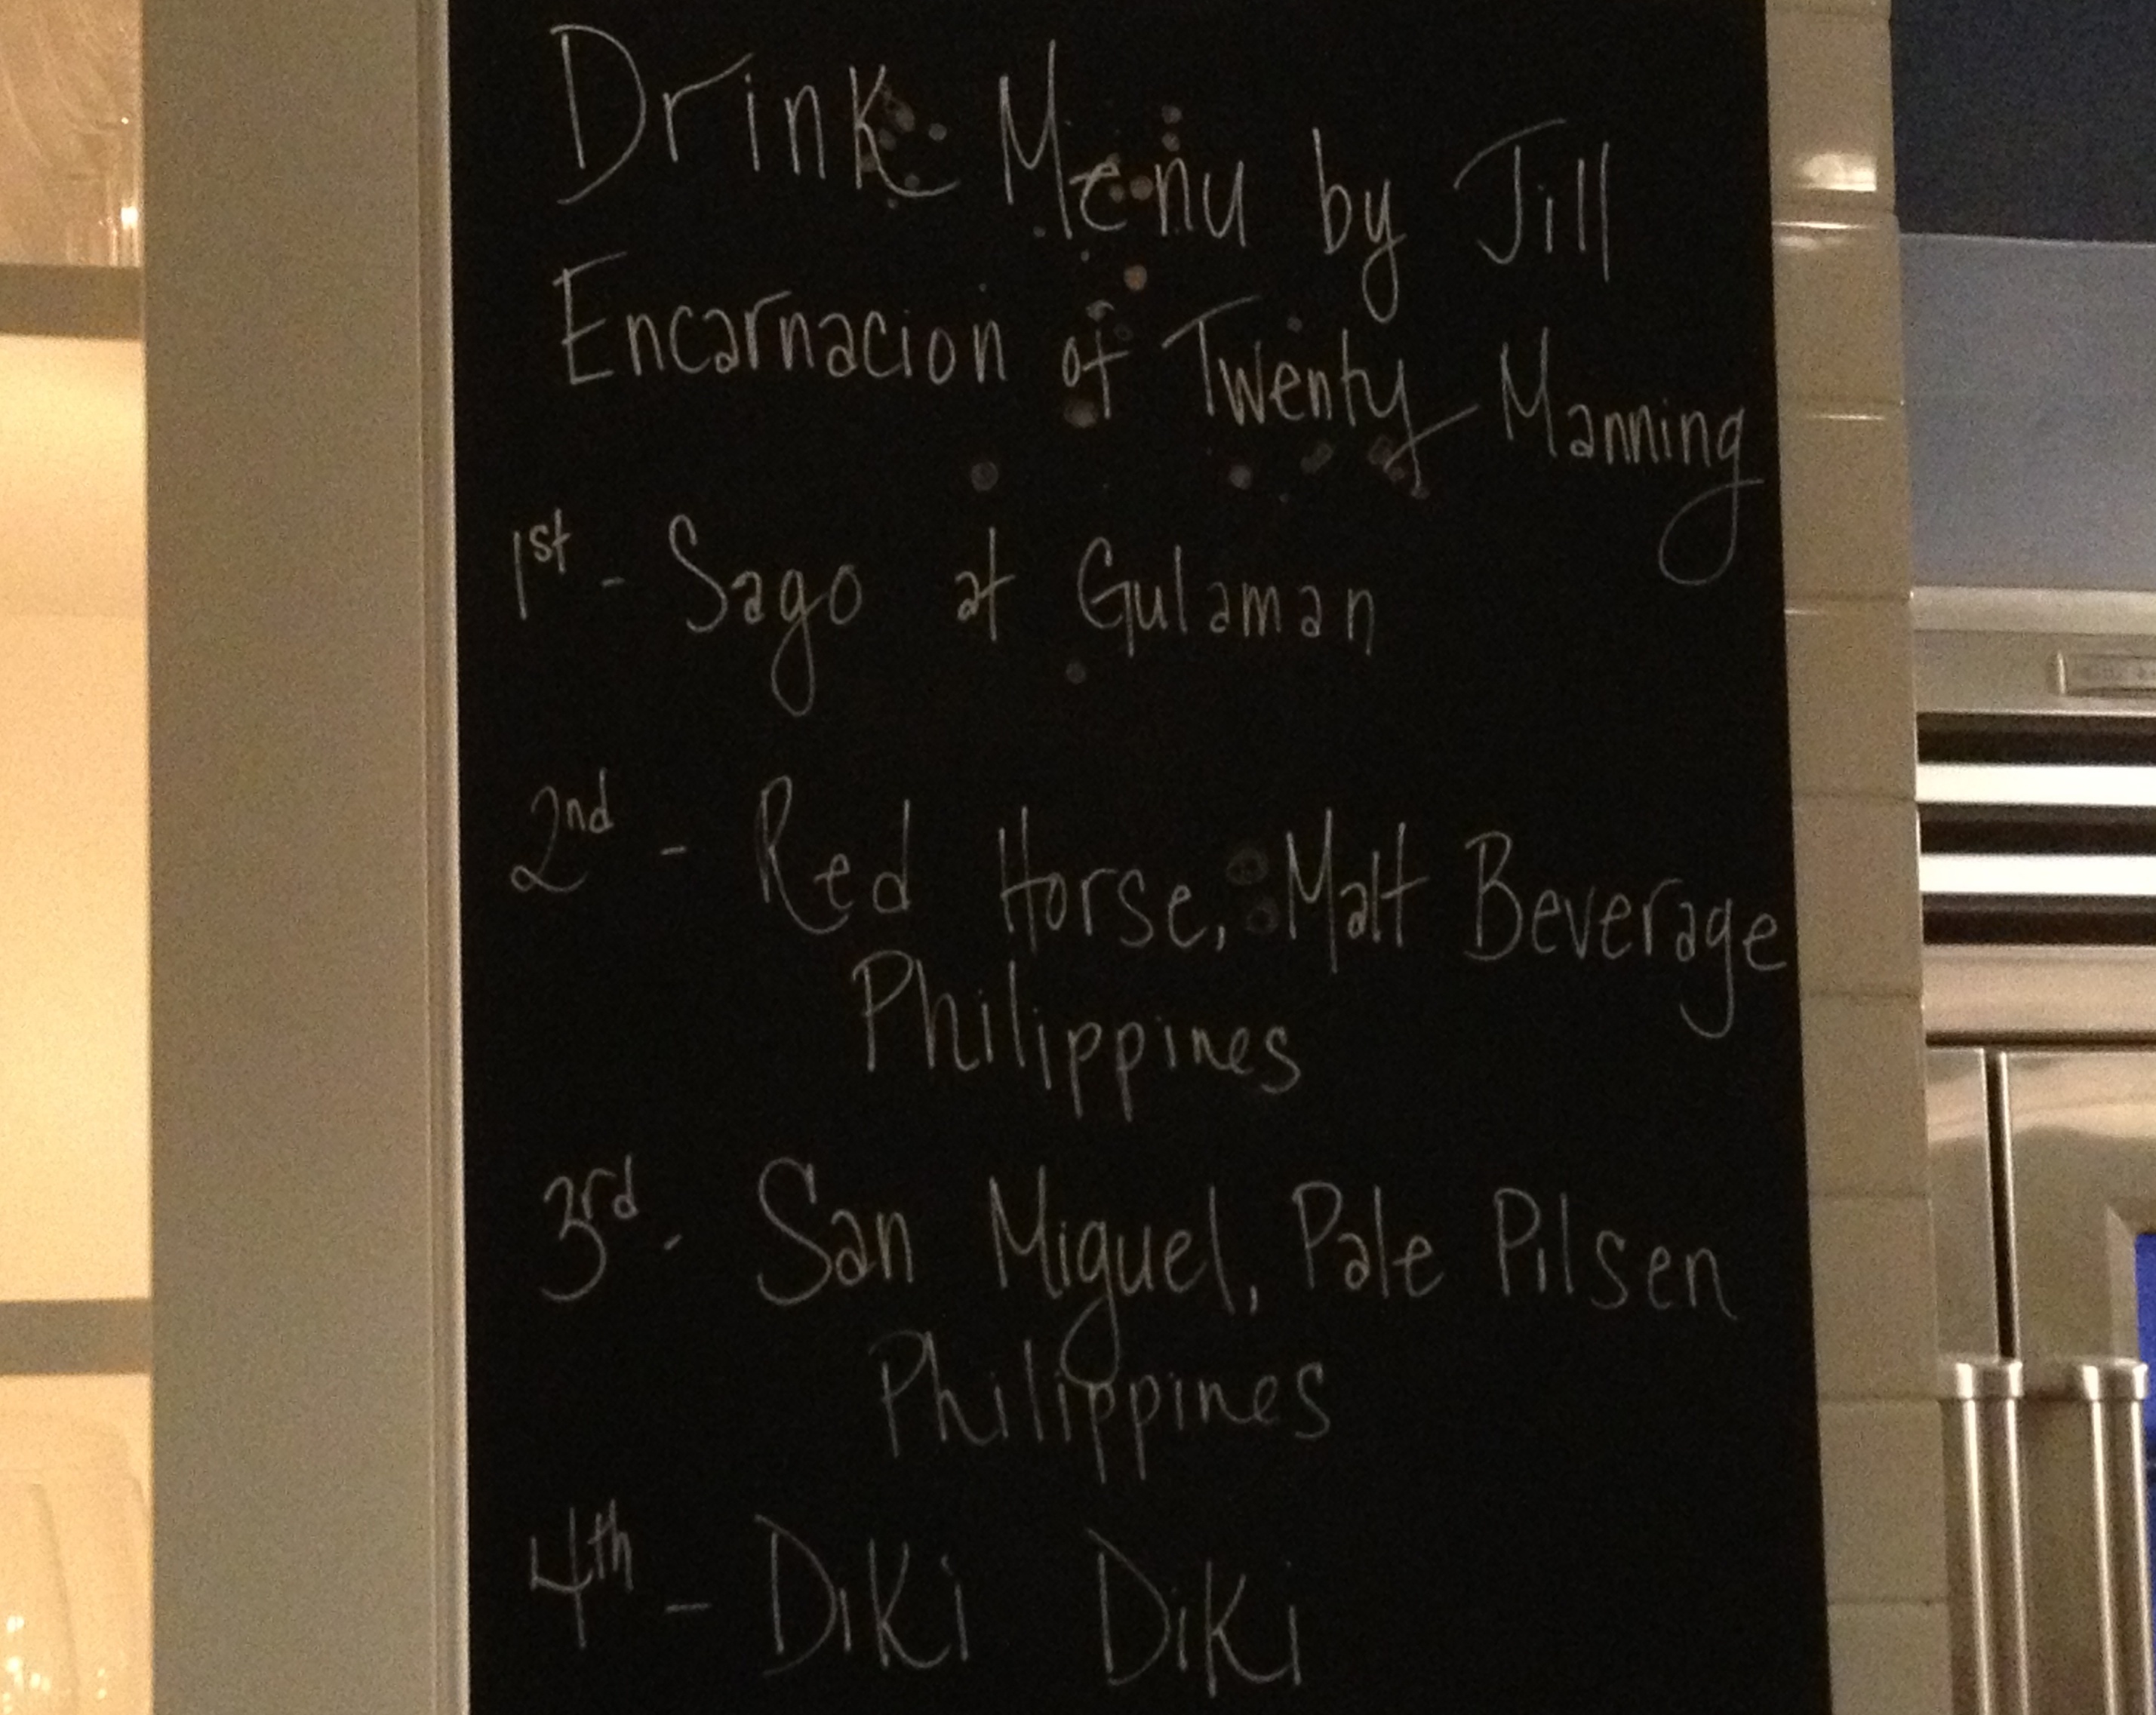 Drink Menu by Jill
Encarnacion of Twenty Manning
1st - Sago at Gulaman
2nd - Red Horse, Malt Beverage
Philippines
3rd - San Miguel, Pale Pilsen
Philippines
4th - Diki Diki